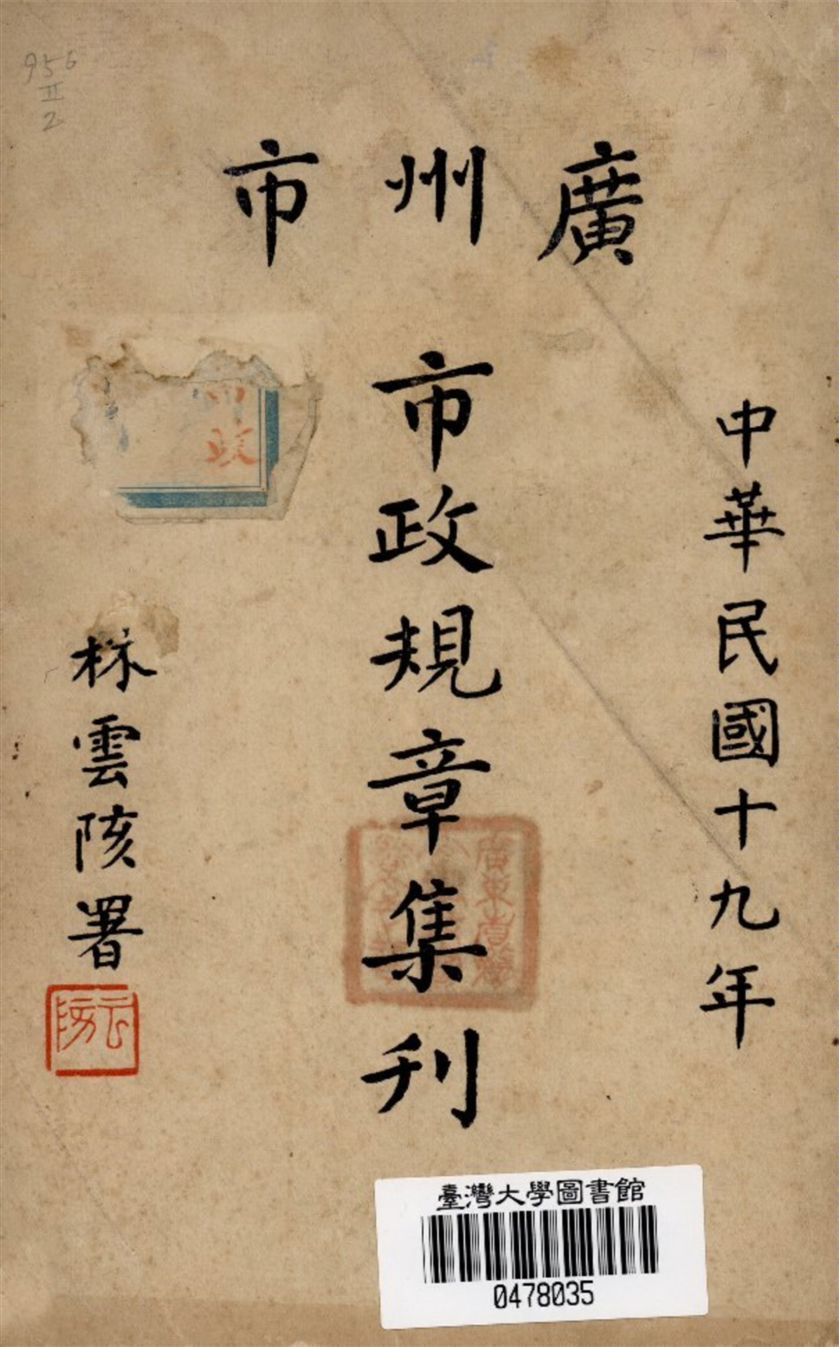 廣州市
中華民國十九年
市政規章集刊
林雲陔署
956
II
2
市政
臺灣大學圖書館
0478035